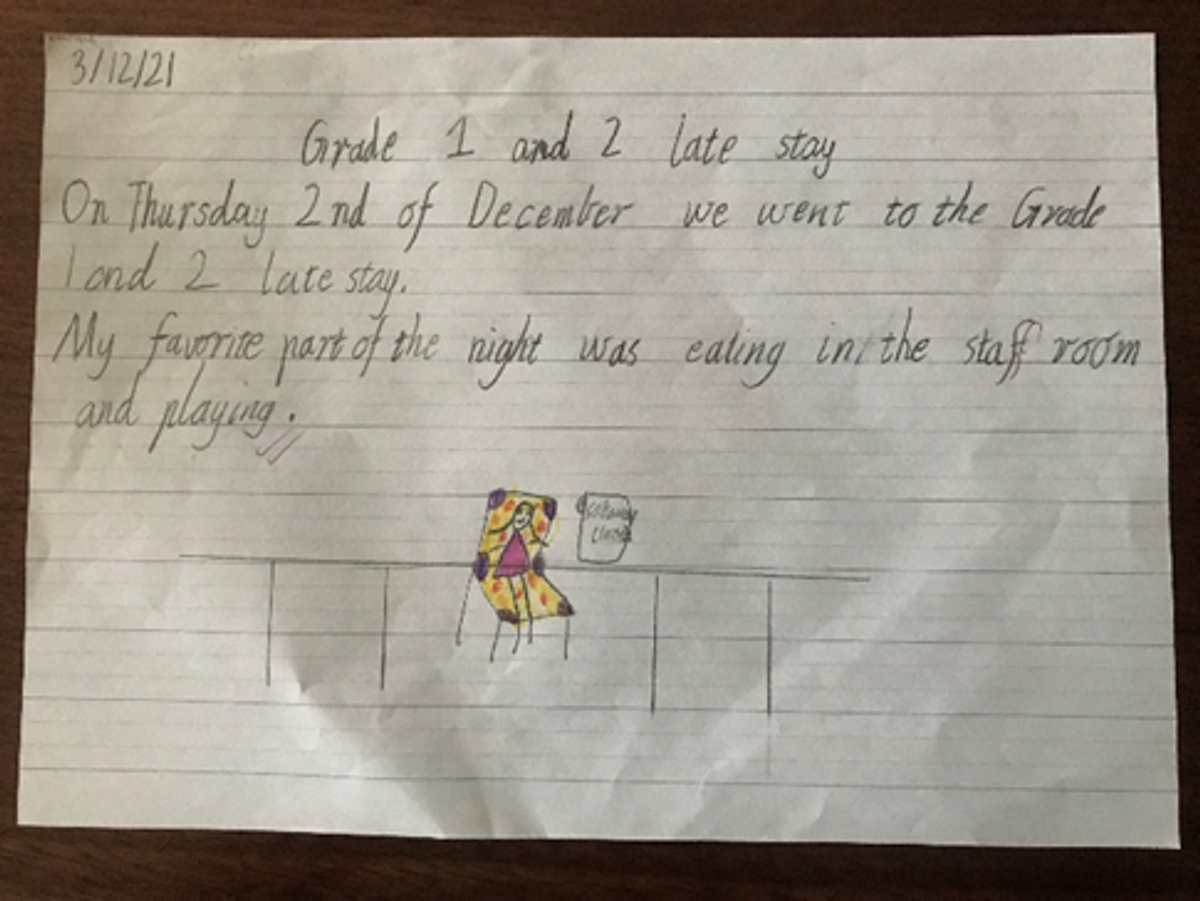 3/12/21
Grade 1 and 2 late stay
On Thursday 2nd of December we went to the Grade
1 and 2 late stay.
My favorite part of the night was eating in the staff room
and playing.